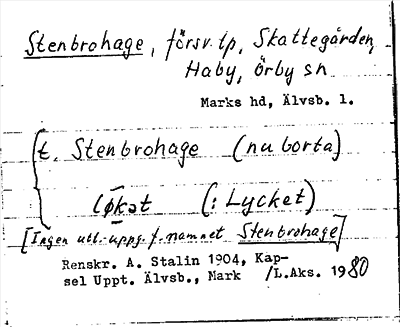 Stenbrohage, försv. tp, Skattegården,
Haby, Örby sn
Marks hd, Älvsb. l.
t. Stenbrohage (nu borta)
Lø̄kət (: Lycket)
[Ingen utt.-uppg. f. namnet Stenbrohage]
Renskr. A. Stalin 1904, Kap-
sel Uppt. Älvsb., Mark /L.Aks. 1980